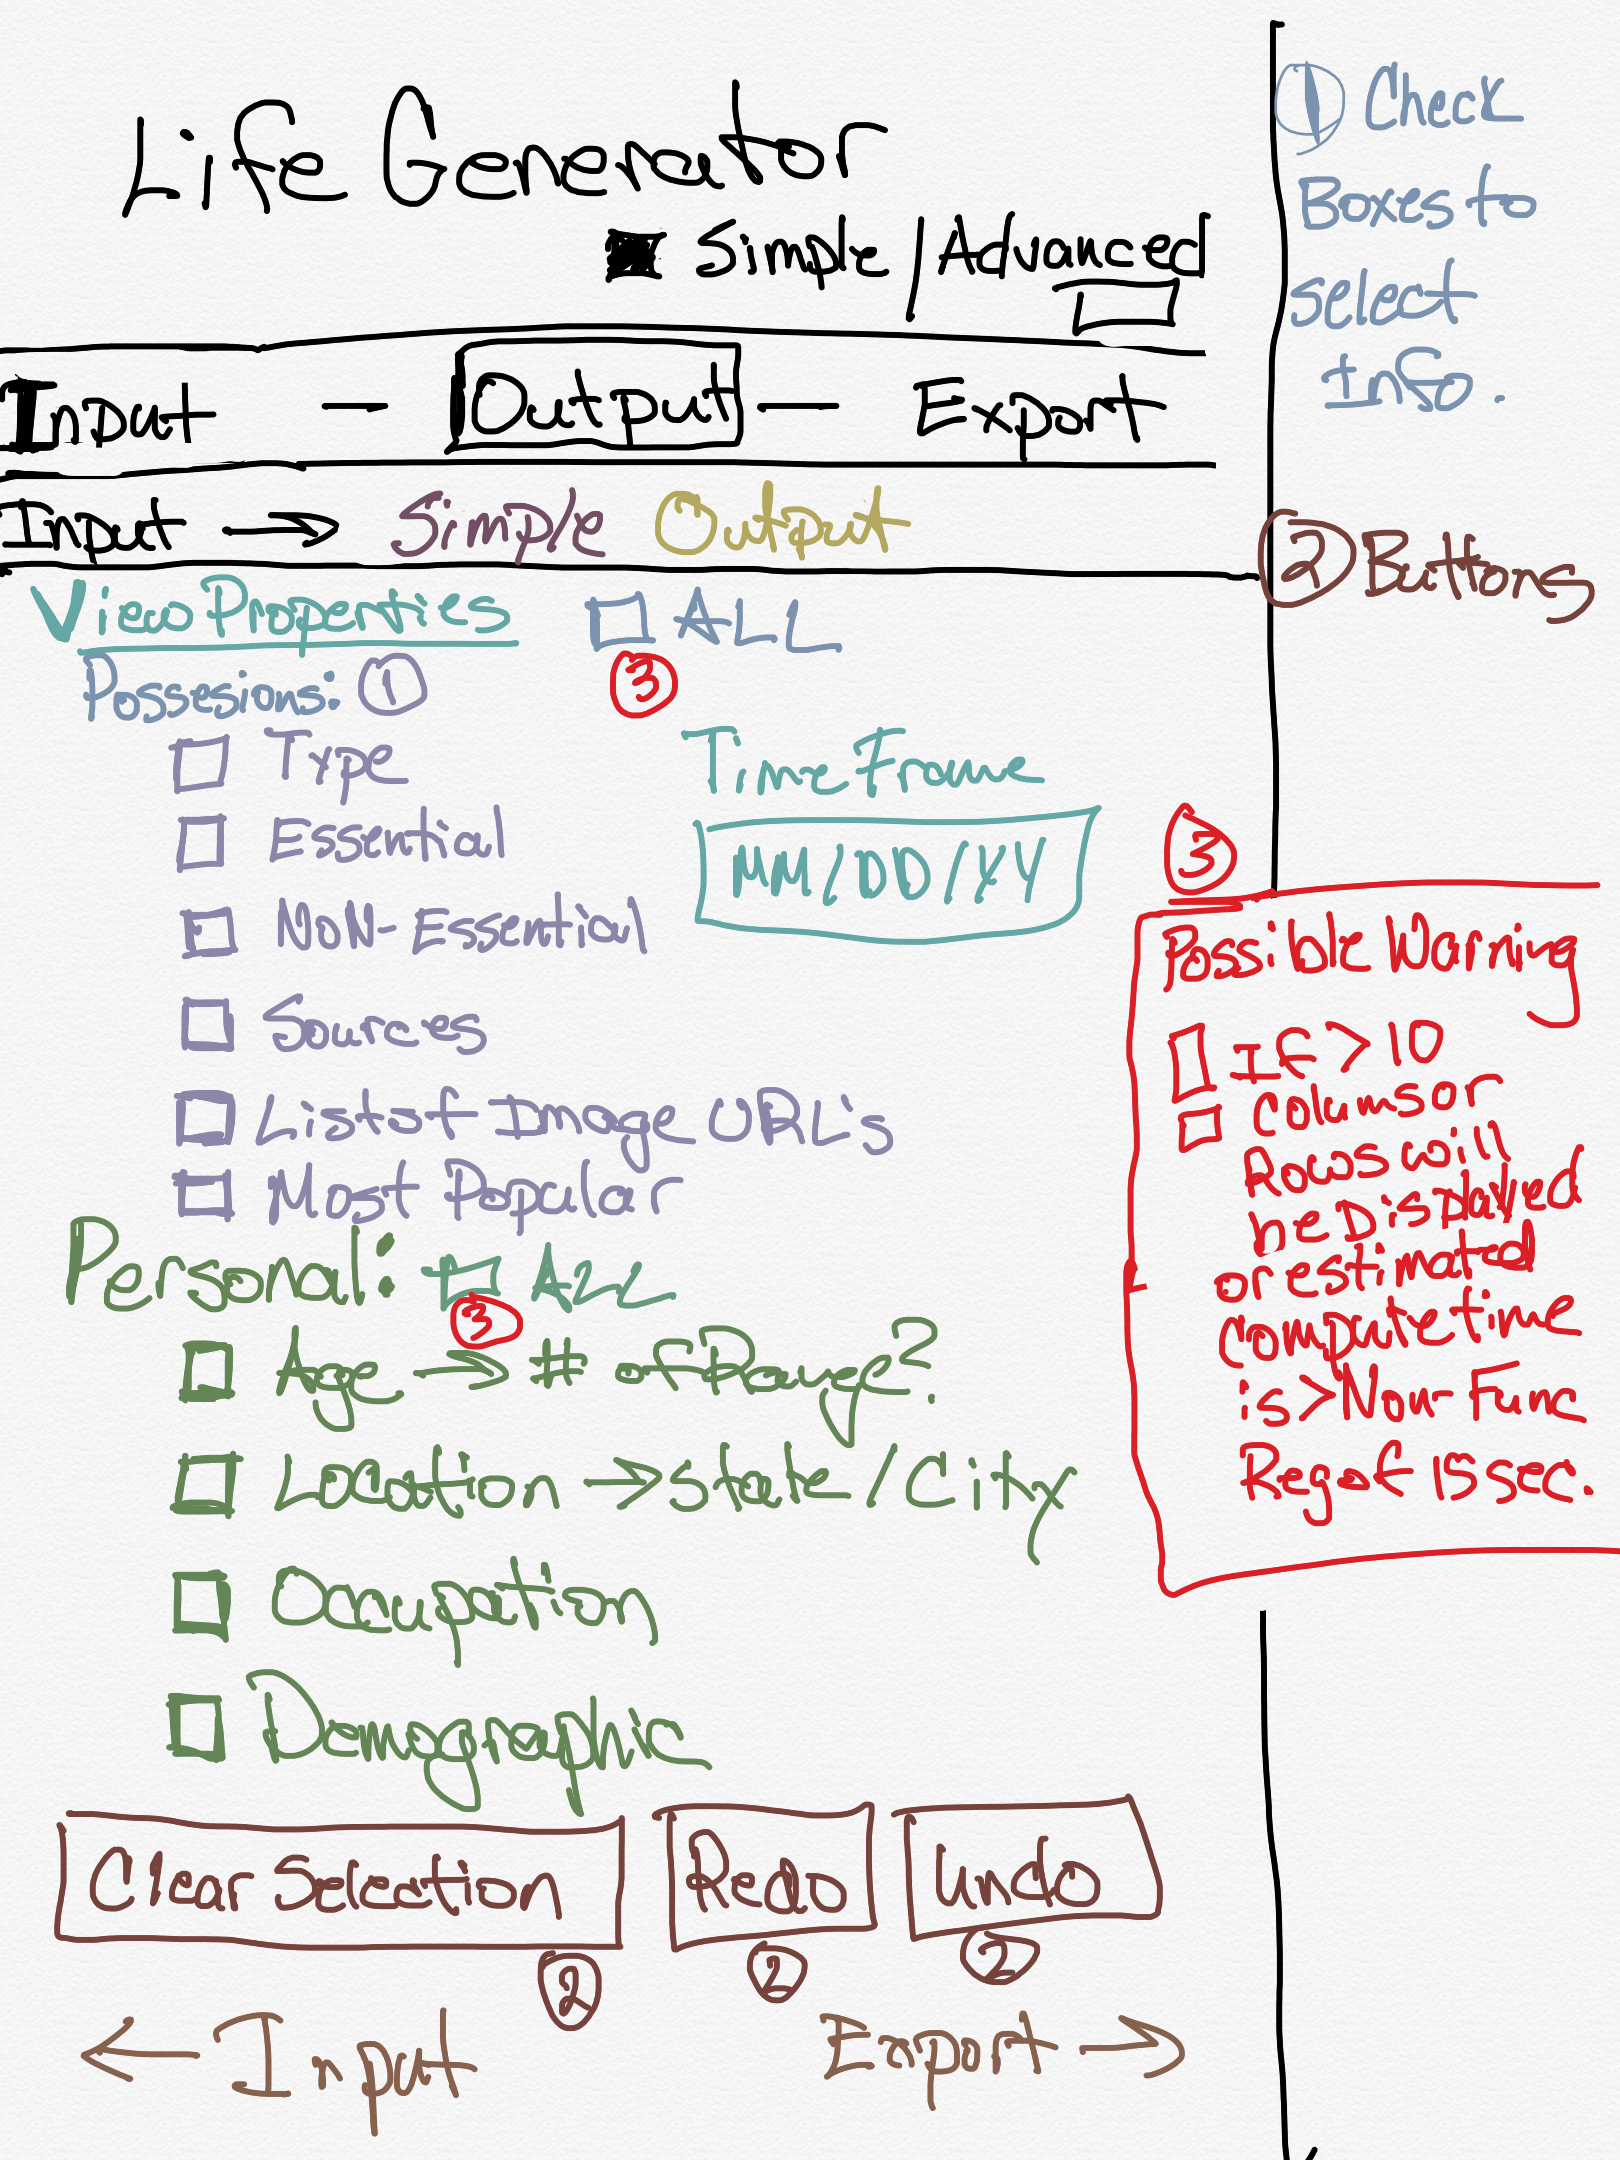 Life Generator
Simple / Advanced
Input — Output — Export
Input → Simple Output
View Properties
ALL
Possesions: ①
③
Type
Essential
Non-Essential
Sources
List of Image URL's
Most Popular
Time Frame
MM/DD/YY
Personal: ALL
③
Age → # of Range?
Location → State/City
Occupation
Demographic
Clear Selection
Redo
Undo
②
②
②
← Input
Export →
① Check
Boxes to
select
Info.
② Buttons
③
Possible Warning
If > 10
Colums or
Rows will
be Displayed
or estimated
compute time
is > Non-Func
Req of 15 sec.